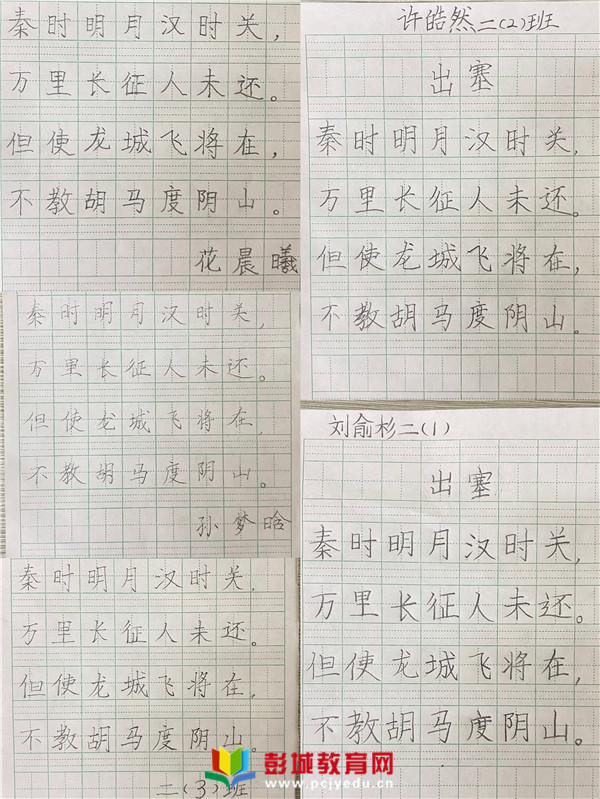 秦时明月汉时关，
万里长征人未还。
但使龙城飞将在，
不教胡马度阴山。
花晨曦
秦时明月汉时关，
万里长征人未还。
但使龙城飞将在，
不教胡马度阴山。
孙梦晗
秦时明月汉时关，
万里长征人未还。
但使龙城飞将在，
不教胡马度阴山。
二（3）班
许皓然二（2）班
出塞
秦时明月汉时关，
万里长征人未还。
但使龙城飞将在，
不教胡马度阴山。
刘俞杉二（1）
出塞
秦时明月汉时关，
万里长征人未还。
但使龙城飞将在，
不教胡马度阴山。
彭城教育网
www.pcjyedu.cn